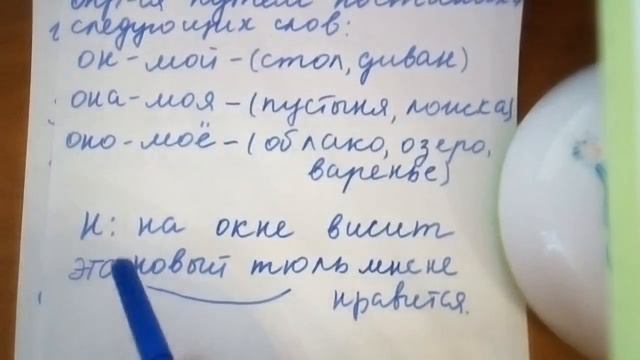 следующих слов:
он - мой - (стол, диван)
она - моя - (пустыня, полиска)
оно - моё - (облако, озеро,
варенье)
Н: на окне висит
это новый тюль мне не
нравится.